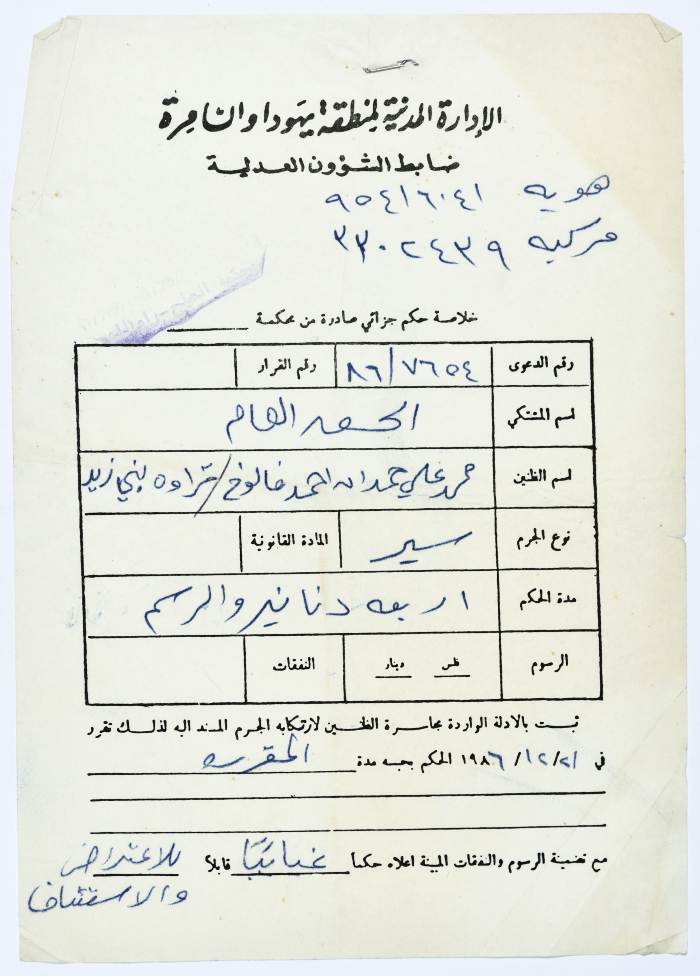 الإدارة المدنية لمنطقة يهودا والسامرة
ضابط الشؤون العدلية
هويه ٩٥٤١٦٠٤١
مركبه ٣٣٠٢٤٣٩
خلاصة حكم جزائي صادرة من محكمة
رقم الدعوى ٨٦/٧٦٥٤ رقم القرار
اسم المشتكي الحق العام
اسم الظنين محمد علي حمدان احمد / قراوه بني زيد
نوع الجرم سير المادة القانونية
مدة الحكم اربعه دنانير والرسم
الرسوم فلس دينار النفقات
ثبت بالادلة الواردة بجاسرة الظنين لارتكابه الجرم المسند اليه لذلك تقرر
في ٢١/١٢/١٩٨٦ الحكم بحبسه مدة
مع تضمينة الرسوم والنفقات المبينة اعلاه حكماً غيابيًا قابلاً للاعتراض
والاستئناف